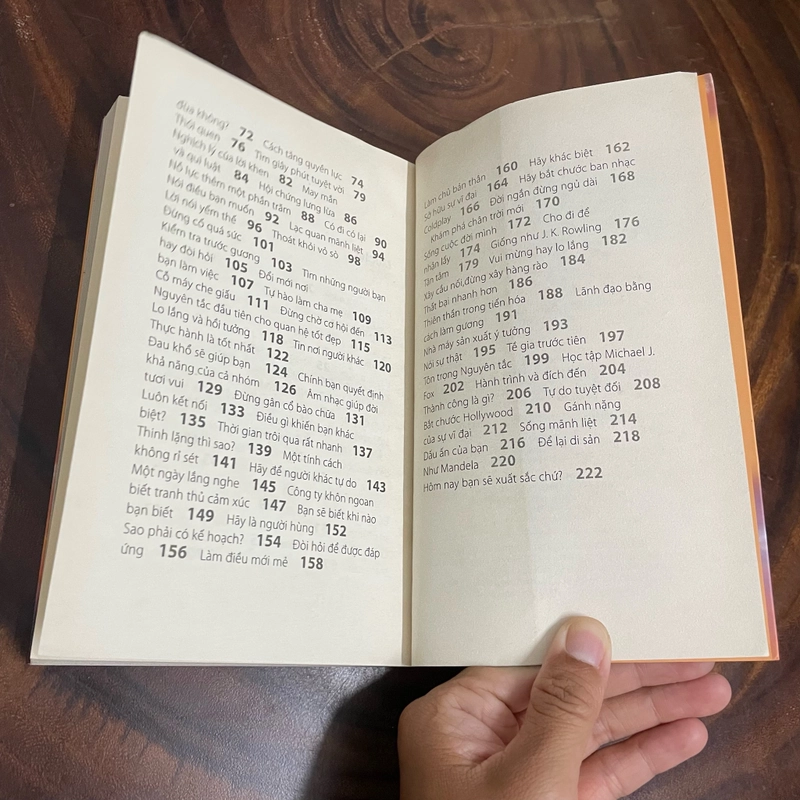 đùa không? 72 Cách tăng quyền lực 74
Thói quen 76 Tìm giây phút tuyệt vời 79
Nghịch lý của lời khen 82 May mắn
và qui luật 84 Hội chứng lưng lửa 86
Nỗ lực thêm một phần trăm 88 Có đi có lại 90
Nói điều bạn muốn 92 Lạc quan mãnh liệt 94
Lời nói yếm thế 96 Thoát khỏi vỏ sò 98
Đừng cố quá sức 101
Kiểm tra trước gương 103 Tìm những người bạn
hay đòi hỏi 105 Đổi mới nơi
bạn làm việc 107 Tự hào làm cha mẹ 109
Cỗ máy che giấu 111 Đừng chờ cơ hội đến 113
Nguyên tắc đầu tiên cho quan hệ tốt đẹp 115
Lo lắng và hồi tưởng 118 Tin nơi người khác 120
Thực hành là tốt nhất 122
Đau khổ sẽ giúp bạn 124 Chính bạn quyết định
khả năng của cả nhóm 126 Âm nhạc giúp đời
tươi vui 129 Đừng gắn cổ bào chữa 131
Luôn kết nối 133 Điều gì khiến bạn khác
biệt? 135 Thời gian trôi qua rất nhanh 137
Thinh lặng thì sao? 139 Một tính cách
không rỉ sét 141 Hãy để người khác tự do 143
Một ngày lắng nghe 145 Công ty khôn ngoan
biết tranh thủ cảm xúc 147 Bạn sẽ biết khi nào
bạn biết 149 Hãy là người hùng 152
Sao phải có kế hoạch? 154 Đòi hỏi để được đáp
ứng 156 Làm điều mới mẻ 158
Làm chủ bản thân 160 Hãy khác biệt 162
Sở hữu sự vĩ đại 164 Hãy bắt chước ban nhạc
Coldplay 166 Đời ngắn đừng ngủ dài 168
Khám phá chân trời mới 170
Sống cuộc đời mình 172 Cho đi để
nhận lấy 174 Giống như J. K. Rowling 176
Tận tâm 179 Vui mừng hay lo lắng 182
Xây cầu nối, đừng xây hàng rào 184
Thất bại nhanh hơn 186
Thiên thần trong tiến hóa 188 Lãnh đạo bằng
cách làm gương 191
Nhà máy sản xuất ý tưởng 193
Nói sự thật 195 Tề gia trước tiên 197
Tôn trọng Nguyên tắc 199 Học tập Michael J.
Fox 202 Hành trình và đích đến 204
Thành công là gì? 206 Tự do tuyệt đối 208
Bắt chước Hollywood 210 Gánh nặng
của sự vĩ đại 212 Sống mãnh liệt 214
Dấu ấn của bạn 216 Để lại di sản 218
Như Mandela 220
Hôm nay bạn sẽ xuất sắc chứ? 222